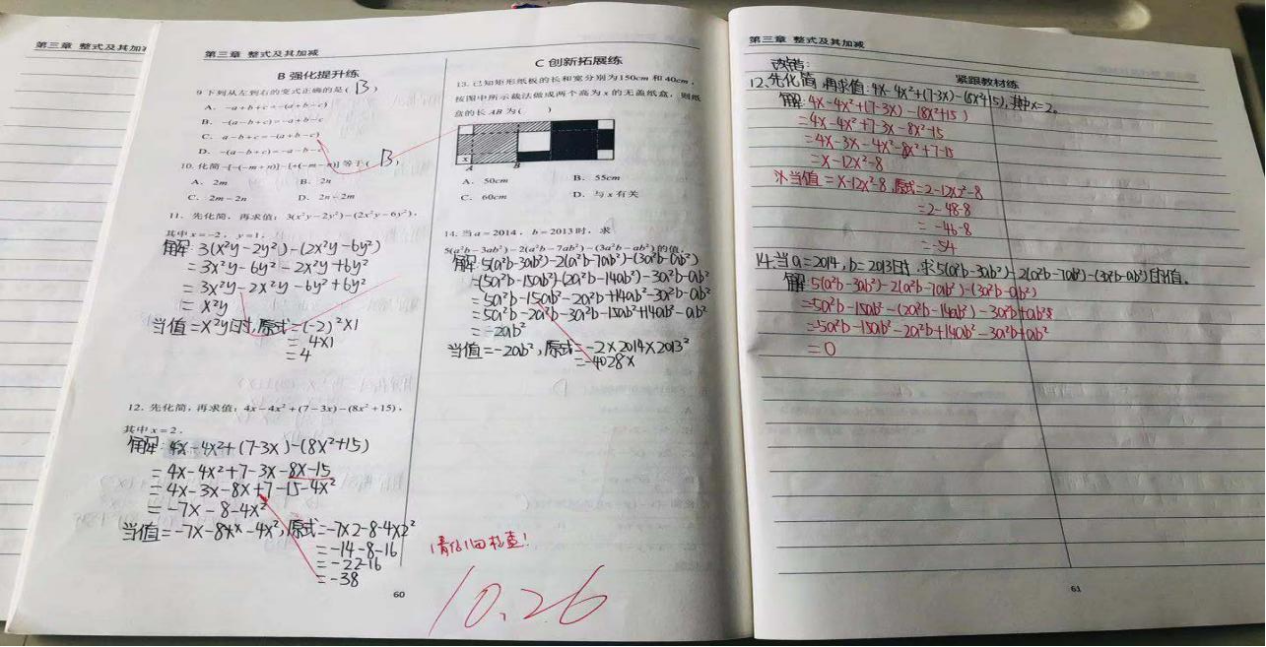 第三章 整式及其加
第三章 整式及其加减
B 强化提升练
9.下列从左到右的变式正确的是( B )
A. -a+b+c=-(a+b-c)
B. -(a-b+c)=-a+b-c
C. a-b+c=-(a+b-c)
D. -(a-b+c)=-a-b-c
10. 化简-[-(-m+n)]-[+(-m-n)]等于( B )
A. 2m
B. 2n
C. 2m-2n
D. 2n-2m
11. 先化简，再求值：3(x²y-2y²)-(2x²y-6y²)，
其中x=-2，y=1.
解：3(x²y-2y²)-(2x²y-6y²)
=3x²y-6y²-2x²y+6y²
=3x²y-2x²y-6y²+6y²
=x²y
当值=x²y时,原式=(-2)²×1
=4×1
=4
12. 先化简，再求值：4x-4x²+(7-3x)-(8x²+15)，
其中x=2.
解：4x-4x²+(7-3x)-(8x²+15)
=4x-4x²+7-3x-8x-15
=4x-3x-8x+7-15-4x²
=-7x-8-4x²
=-7×2-8-4×2²
=-14-8-16
=-22-16
=-38
60
C 创新拓展练
13. 已知矩形纸板的长和宽分别为150cm 和 40cm，
按图中所示裁法做成两个高为 x 的无盖纸盒，则纸
盒的长 AB 为( )
x
A
B
A. 50cm
B. 55cm
C. 60cm
D. 与 x 有关
14. 当 a=2014，b=2013时，求
5(a²b-3ab²)-2(a²b-7ab²)-(3a²b-ab²)的值.
解：5(a²b-3ab²)-2(a²b-7ab²)-(3a²b-ab²)
=(5a²b-15ab²)-(2a²b-14ab²)-3a²b-ab²
=5a²b-15ab²-2a²b+14ab²-3a²b-ab²
=5a²b-2a²b-3a²b-15ab²+14ab²-ab²
=-2ab²
当值=-2ab²,原式=-2×2014×2013²
=-4028×
10.26
第三章 整式及其加减
紧跟教材练
改错:
12.先化简,再求值:4x-4x²+(7-3x)-(8x²+15),其中x=2.
解:4x-4x²+(7-3x)-(8x²+15)
=4x-4x²+7-3x-8x²-15
=4x-3x-4x²-8x²+7-15
=x-12x²-8
当值=x-12x²-8,原式=2-12×2²-8
=2-48-8
=-46-8
=-54
14.当a=2014,b=2013时,求5(a²b-3ab²)-2(a²b-7ab²)-(3a²b-ab²)的值.
解:5(a²b-3ab²)-2(a²b-7ab²)-(3a²b-ab²)
=5a²b-15ab²-(2a²b-14ab²)-3a²b+ab²
=5a²b-15ab²-2a²b+14ab²-3a²b+ab²
=0
61